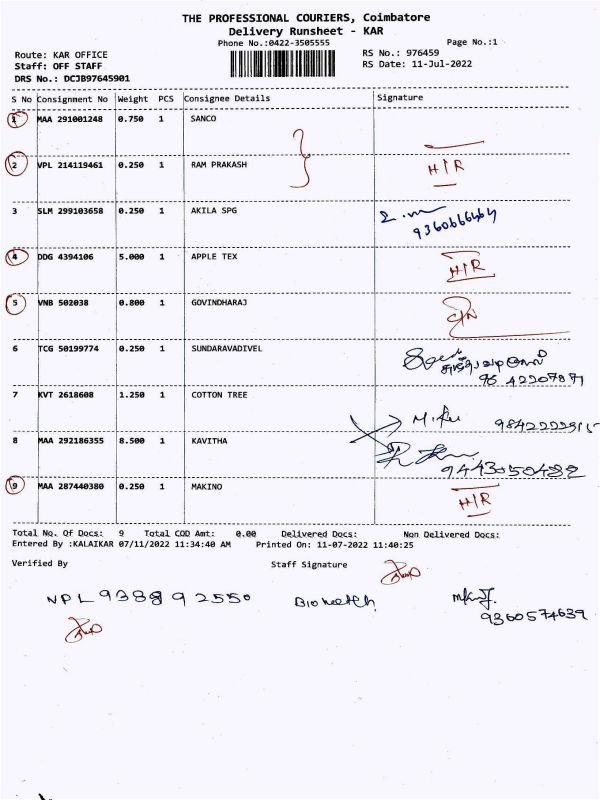 THE PROFESSIONAL COURIERS, Coimbatore
Delivery Runsheet - KAR
Phone No.:0422-3505555 Page No.:1
Route: KAR OFFICE RS No.: 976459
Staff: OFF STAFF RS Date: 11-Jul-2022
DRS No.: DCJB97645901
S No Consignment No Weight PCS Consignee Details Signature
1 MAA 291001248 0.750 1 SANCO
2 VPL 214119461 0.250 1 RAM PRAKASH H/R
3 SLM 299103658 0.250 1 AKILA SPG
9360666464
4 DDG 4394106 5.000 1 APPLE TEX H/R
5 VNB 502038 0.800 1 GOVINDHARAJ
6 TCG 50199774 0.250 1 SUNDARAVADIVEL
98 42207871
7 KVT 2618608 1.250 1 COTTON TREE
9842222915
8 MAA 292186355 8.500 1 KAVITHA
9443050482
9 MAA 287440380 0.250 1 MAKINO H/R
Total No. Of Docs: 9 Total COD Amt: 0.00 Delivered Docs: Non Delivered Docs:
Entered By :KALAIKAR 07/11/2022 11:34:40 AM Printed On: 11-07-2022 11:40:25
Verified By Staff Signature
NPL 938892550
9360574639